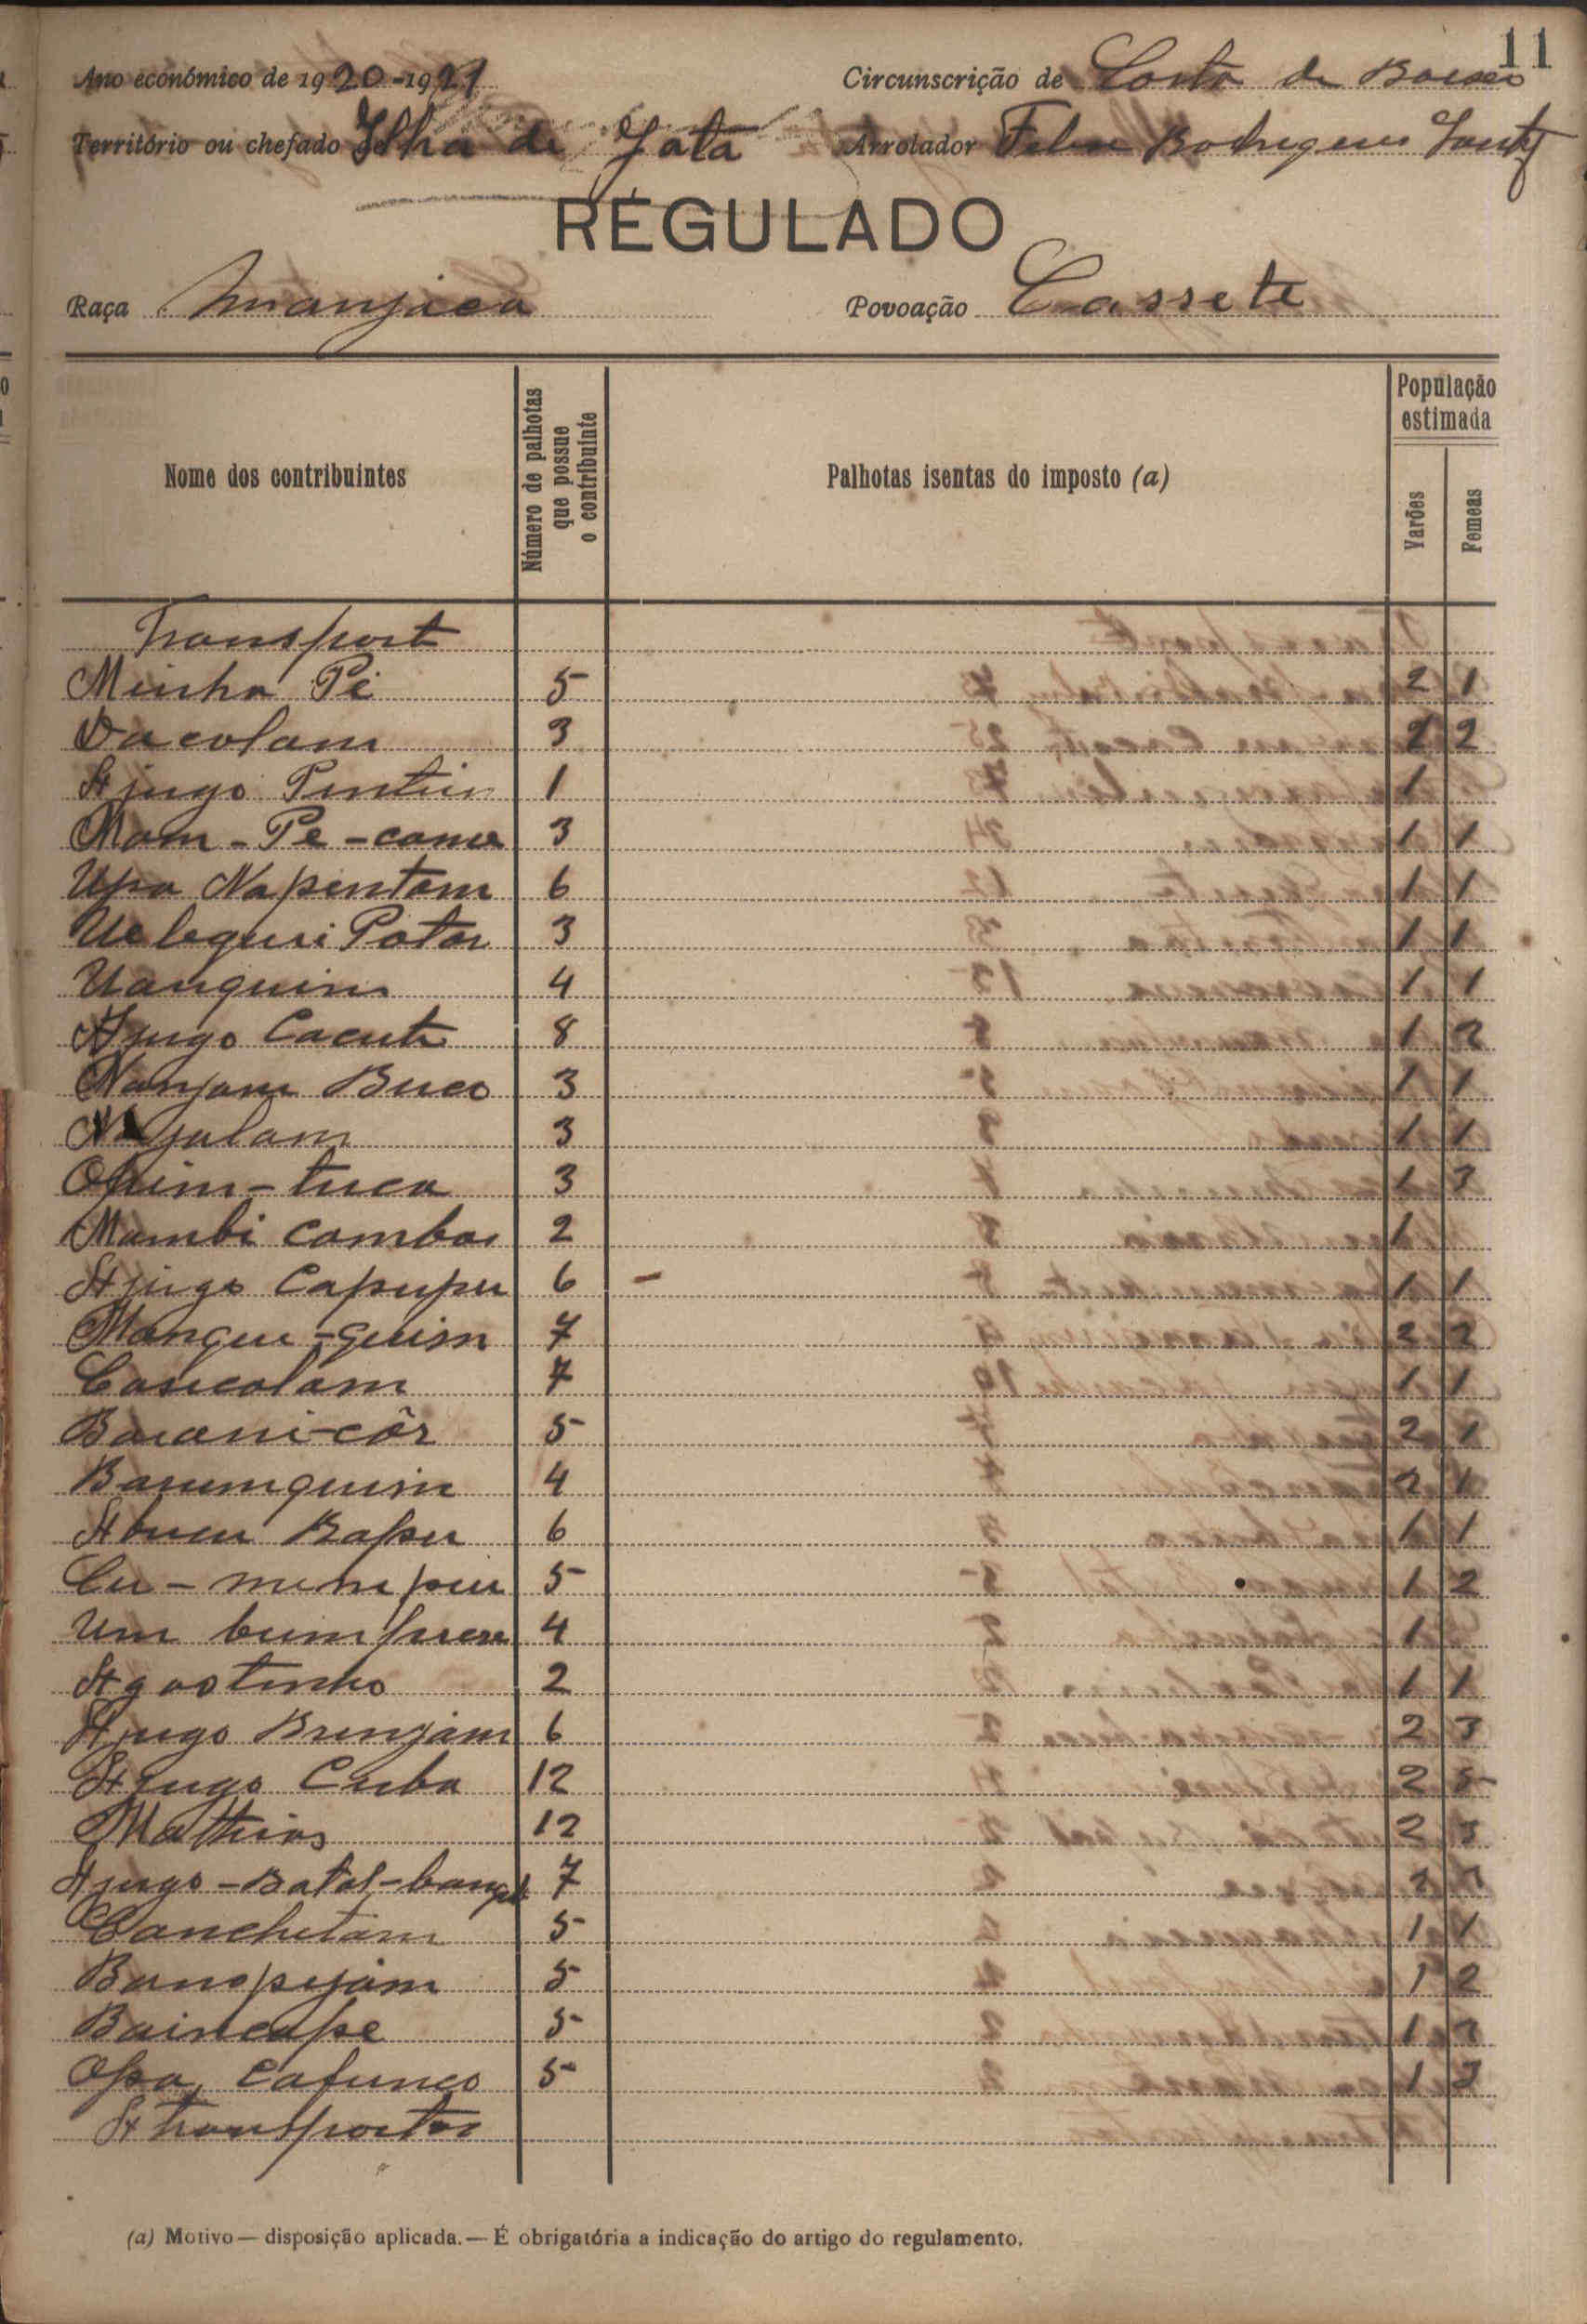 11
Ano económico de 1920-1921 Circunscrição de Costa de Baixo
Território ou chefado Ilha de Jata Arrolador Felix Rodrigues
REGULADO
Raça Manjaca Povoação Cassete
Nome dos contribuintes Número de palhotas que possue o contribuinte Palhotas isentas do imposto (a) População estimada Varões Femeas
Transport
Minha Pé 5 2 1
Dacolam 3 2 2
Ajugo 1 1
Mom-Pe-came 3 1 1
Upa Napentam 6 1 1
Uelequi Potar 3 1 1
Uanquim 4 1 1
Ajugo Cacute 8 1 2
Nanjam Buco 3 1 1
Najulam 3 1 1
Opim-tuca 3 1 3
Mambi Cambor 2 1
Ajugo Capupu 6 - 1 1
Mangue-quim 7 2 2
Casicolam 7 1 1
Baiani-côr 5 2 1
Banumquim 4 2 1
Abucu Bapu 6 1 1
Cu-mumpui 5 1 2
Um bum 4 1
Agostinho 2 1 1
Ajugo Brinjam 6 2 3
Ajugo Cuba 12 2 5
Mathias 12 2 3
Ajugo-Batat- 7
Canchitam 5 1 1
Banopijam 5 1 2
Baincape 5 1
Opa Cafunco 5 1 3
A transportar
(a) Motivo — disposição aplicada. — É obrigatória a indicação do artigo do regulamento.